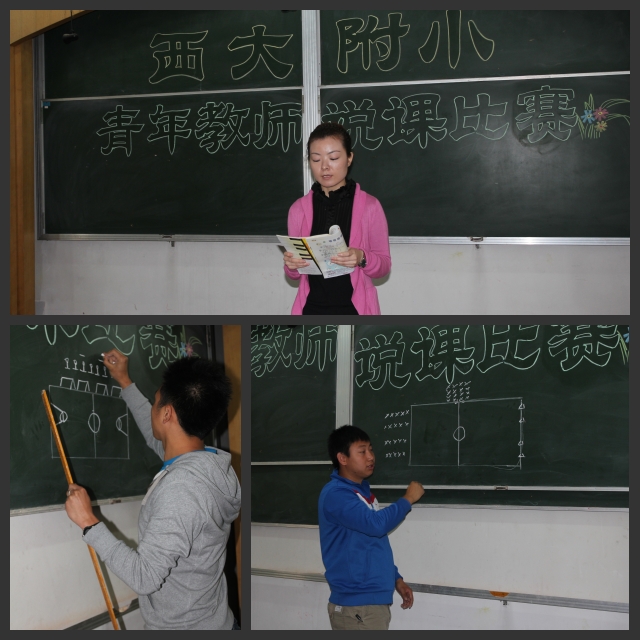 西大附小
青年教师说课比赛
比赛
教师说课比赛